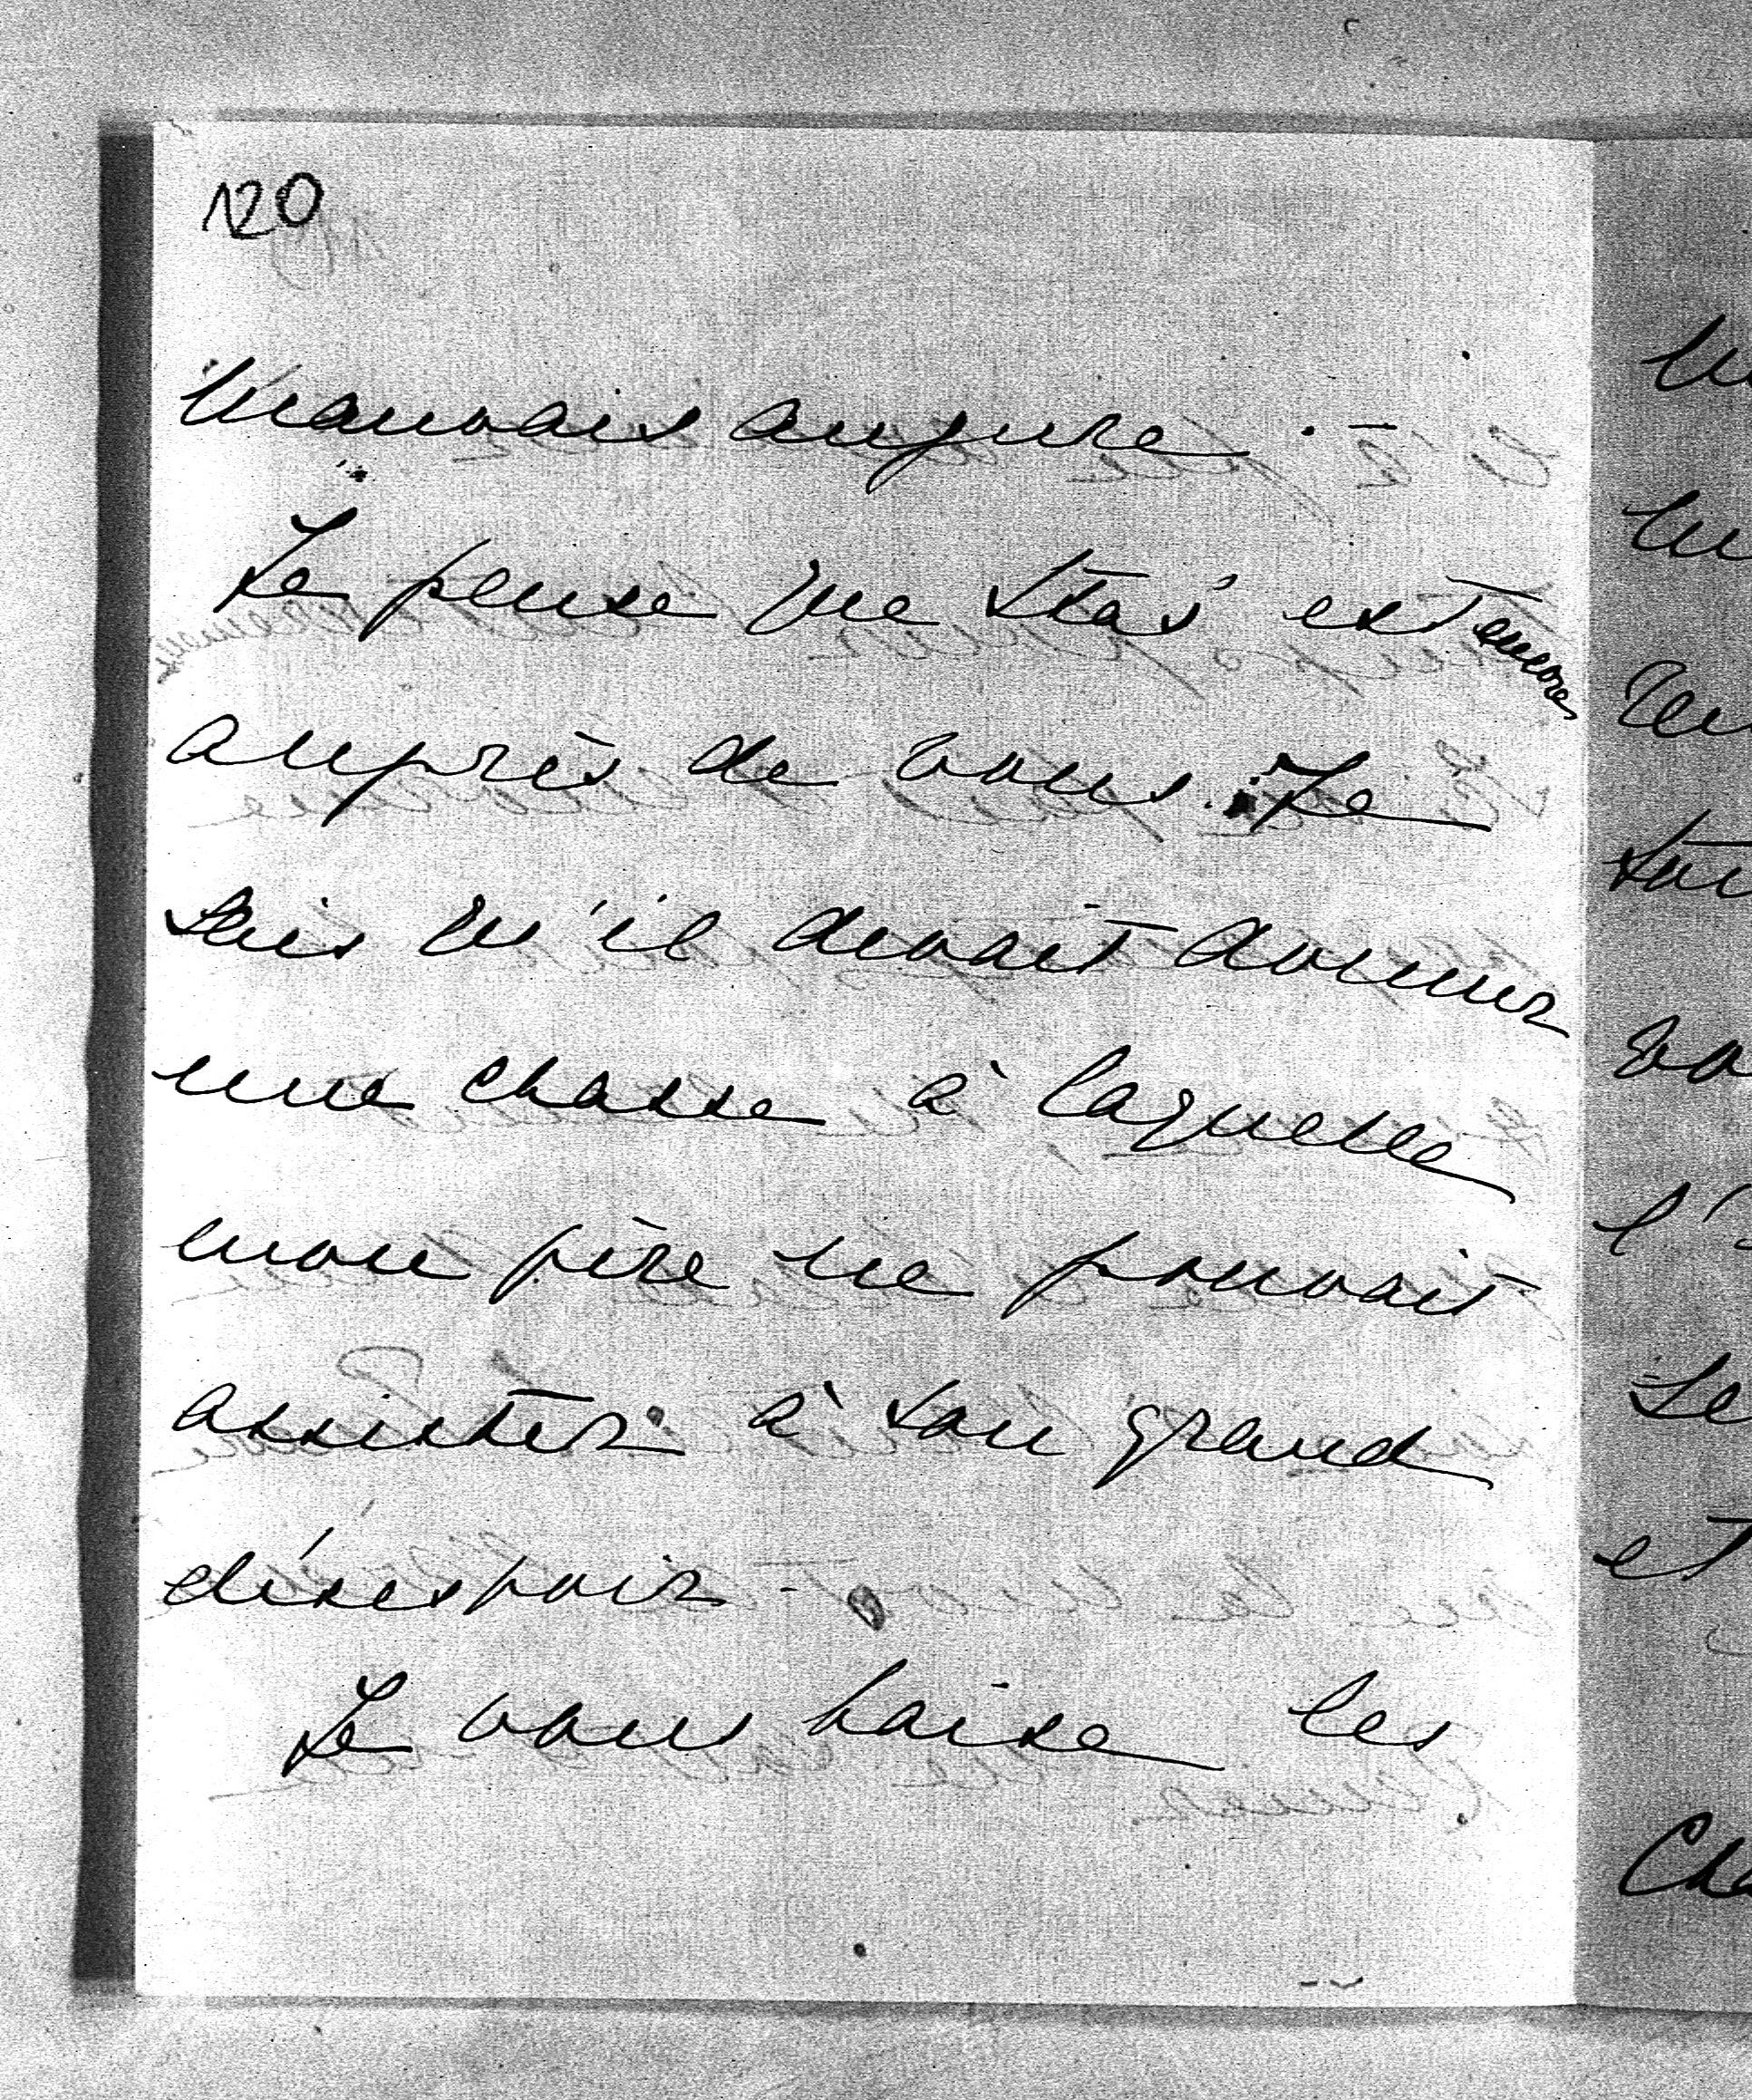 120
mauvais augure. -
Je pense que Staś est encore
auprès de vous. Je
sais qu'il devait donner
une chasse à laquelle
mon père ne pouvait
assister à son grand
désespoir -
Je vous baise les